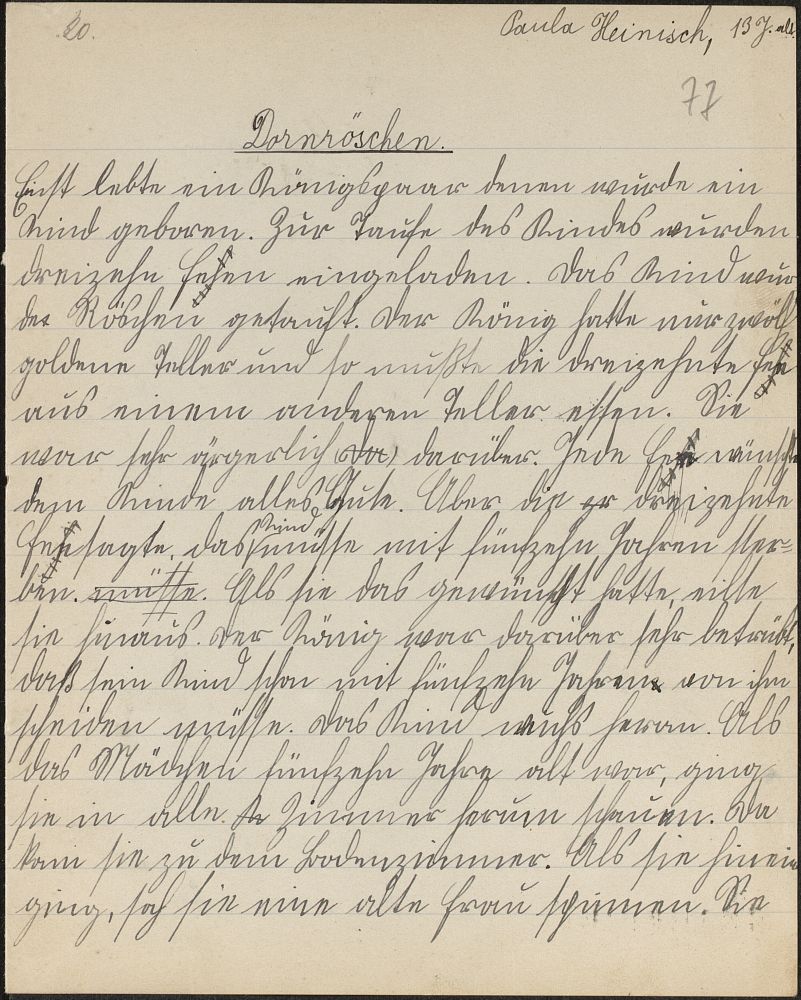 20.
Paula Heinisch, 13 J. alt.
77
Dornröschen.
Einst lebte ein Königspaar denen wurde ein
Kind geboren. Zur Taufe des Kindes wurden
dreizehn Fehen eingeladen. Das Kind wur
de Röschen getauft. Der König hatte nur zwölf
goldene Teller und so mußte die dreizehnte Fee
aus einem anderen Teller essen. Sie
war sehr ärgerlich da darüber. Jede Fee wünschte
dem Kinde alles Gute. Aber die er dreizehnte
Fee sagte, das Kind müsse mit fünfzehn Jahren ster-
ben. müsse. Als sie das gewünscht hatte, eilte
sie hinaus. Der König war darüber sehr betrübt,
daß sein Kind schon mit fünfzehn Jahren von ihm
scheiden müsse. Das Kind wuchs heran. Als
das Mädchen fünfzehn Jahre alt war, ging
sie in alle Zimmer herum schauen. Da
kam sie zu dem Bodenzimmer. Als sie hinein
ging, sah sie eine alte Frau spinnen. Sie